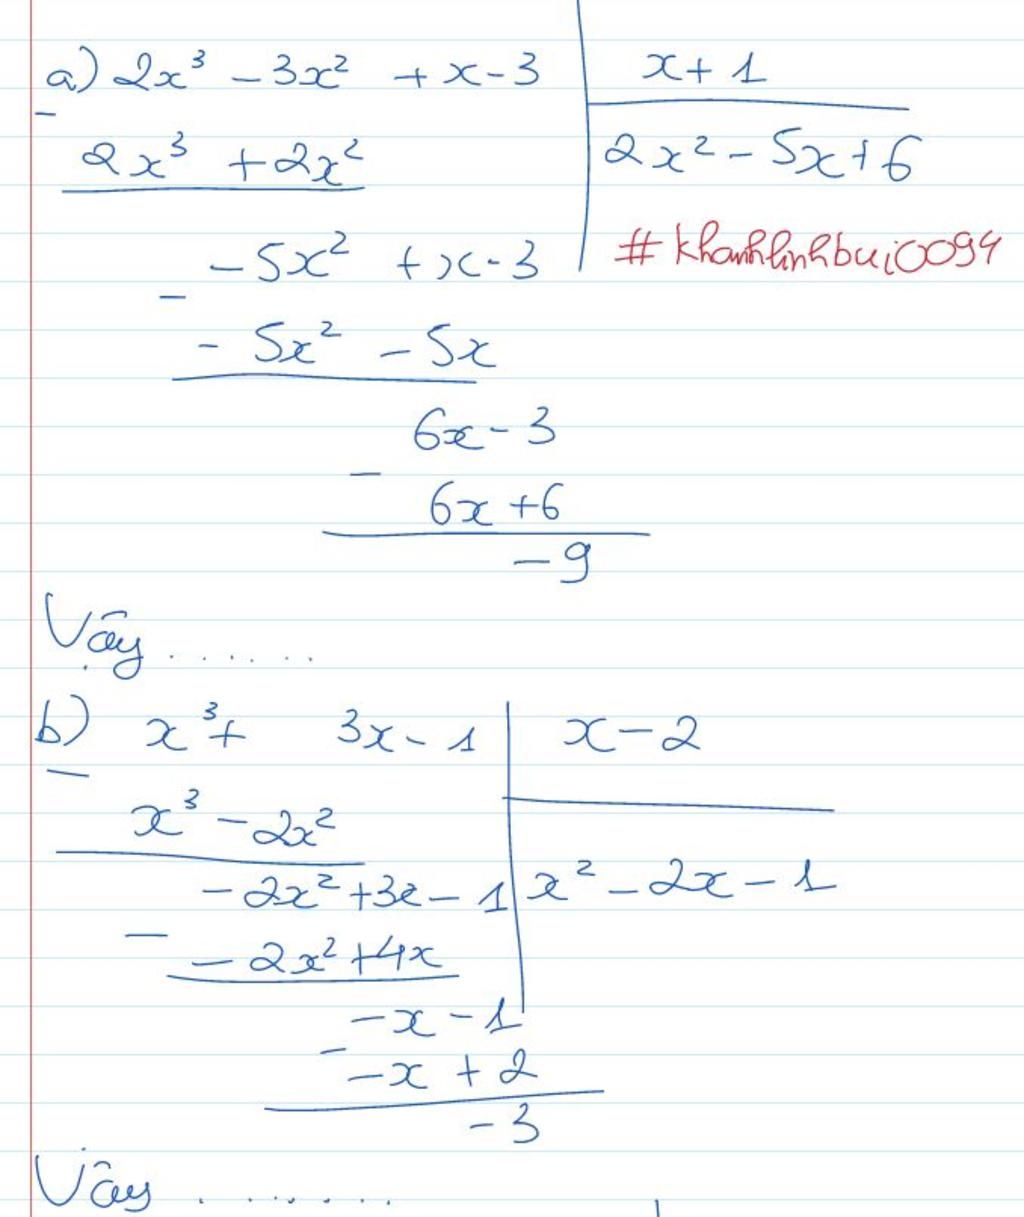 a) 2x³ - 3x² + x - 3 | x + 1
-
2x³ + 2x² | 2x² - 5x + 6
- 5x² + x - 3 #khanhlinhbui0094
-
- 5x² - 5x
6x - 3
-
6x + 6
- 9
Vậy .......
b) x³ + 3x - 1 | x - 2
-
x³ - 2x²
- 2x² + 3x - 1 | x² - 2x - 1
-
- 2x² + 4x
- x - 1
-
- x + 2
- 3
Vậy ........